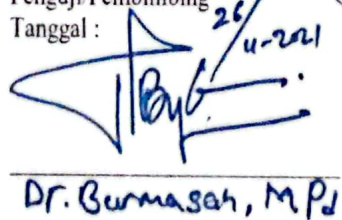 Penguji/Pembimbing
Tanggal : 26/11-2021
Dr. Burmasah, M.Pd